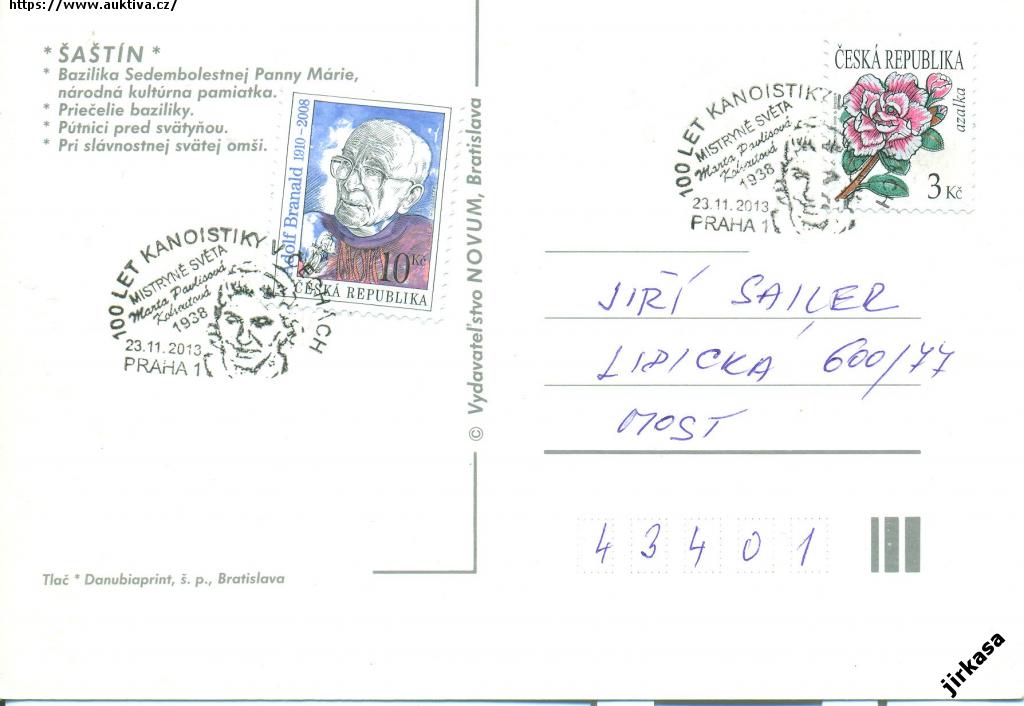 https://www.auktiva.cz/
* ŠAŠTÍN *
* Bazilika Sedembolestnej Panny Márie,
národná kultúrna pamiatka.
* Priečelie baziliky.
* Pútnici pred svätyňou.
* Pri slávnostnej svätej omši.
Adolf Branald 1910-2008
10 Kč
ČESKÁ REPUBLIKA
100 LET KANOISTIKY V ČECHÁCH
MISTRYNĚ SVĚTA
Marta Pavlisová
1938
23.11.2013
PRAHA 1
© Vydavateľstvo NOVUM, Bratislava
Tlač * Danubiaprint, š. p., Bratislava
ČESKÁ REPUBLIKA
azalka
3 Kč
100 LET KANOISTIKY
MISTRYNĚ SVĚTA
Marta Pavlisová
1938
23.11.2013
PRAHA 1
JIŘÍ SAILER
LIPICKÁ 600/77
MOST
43401
jirkasa